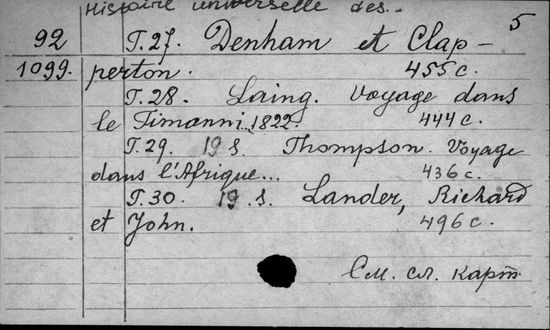 Histoire universelle des..
5
92 T.27. Denham et Clap-
1099. perton. 455 с.
T.28. Laing. Voyage dans
le Timanni. 1822. 444 с.
T.29. 19 s. Thompson. Voyage
dans l'Afrique... 436 с.
T.30. 19 s. Lander, Richard
et John. 496 с.
См. сл. карт.